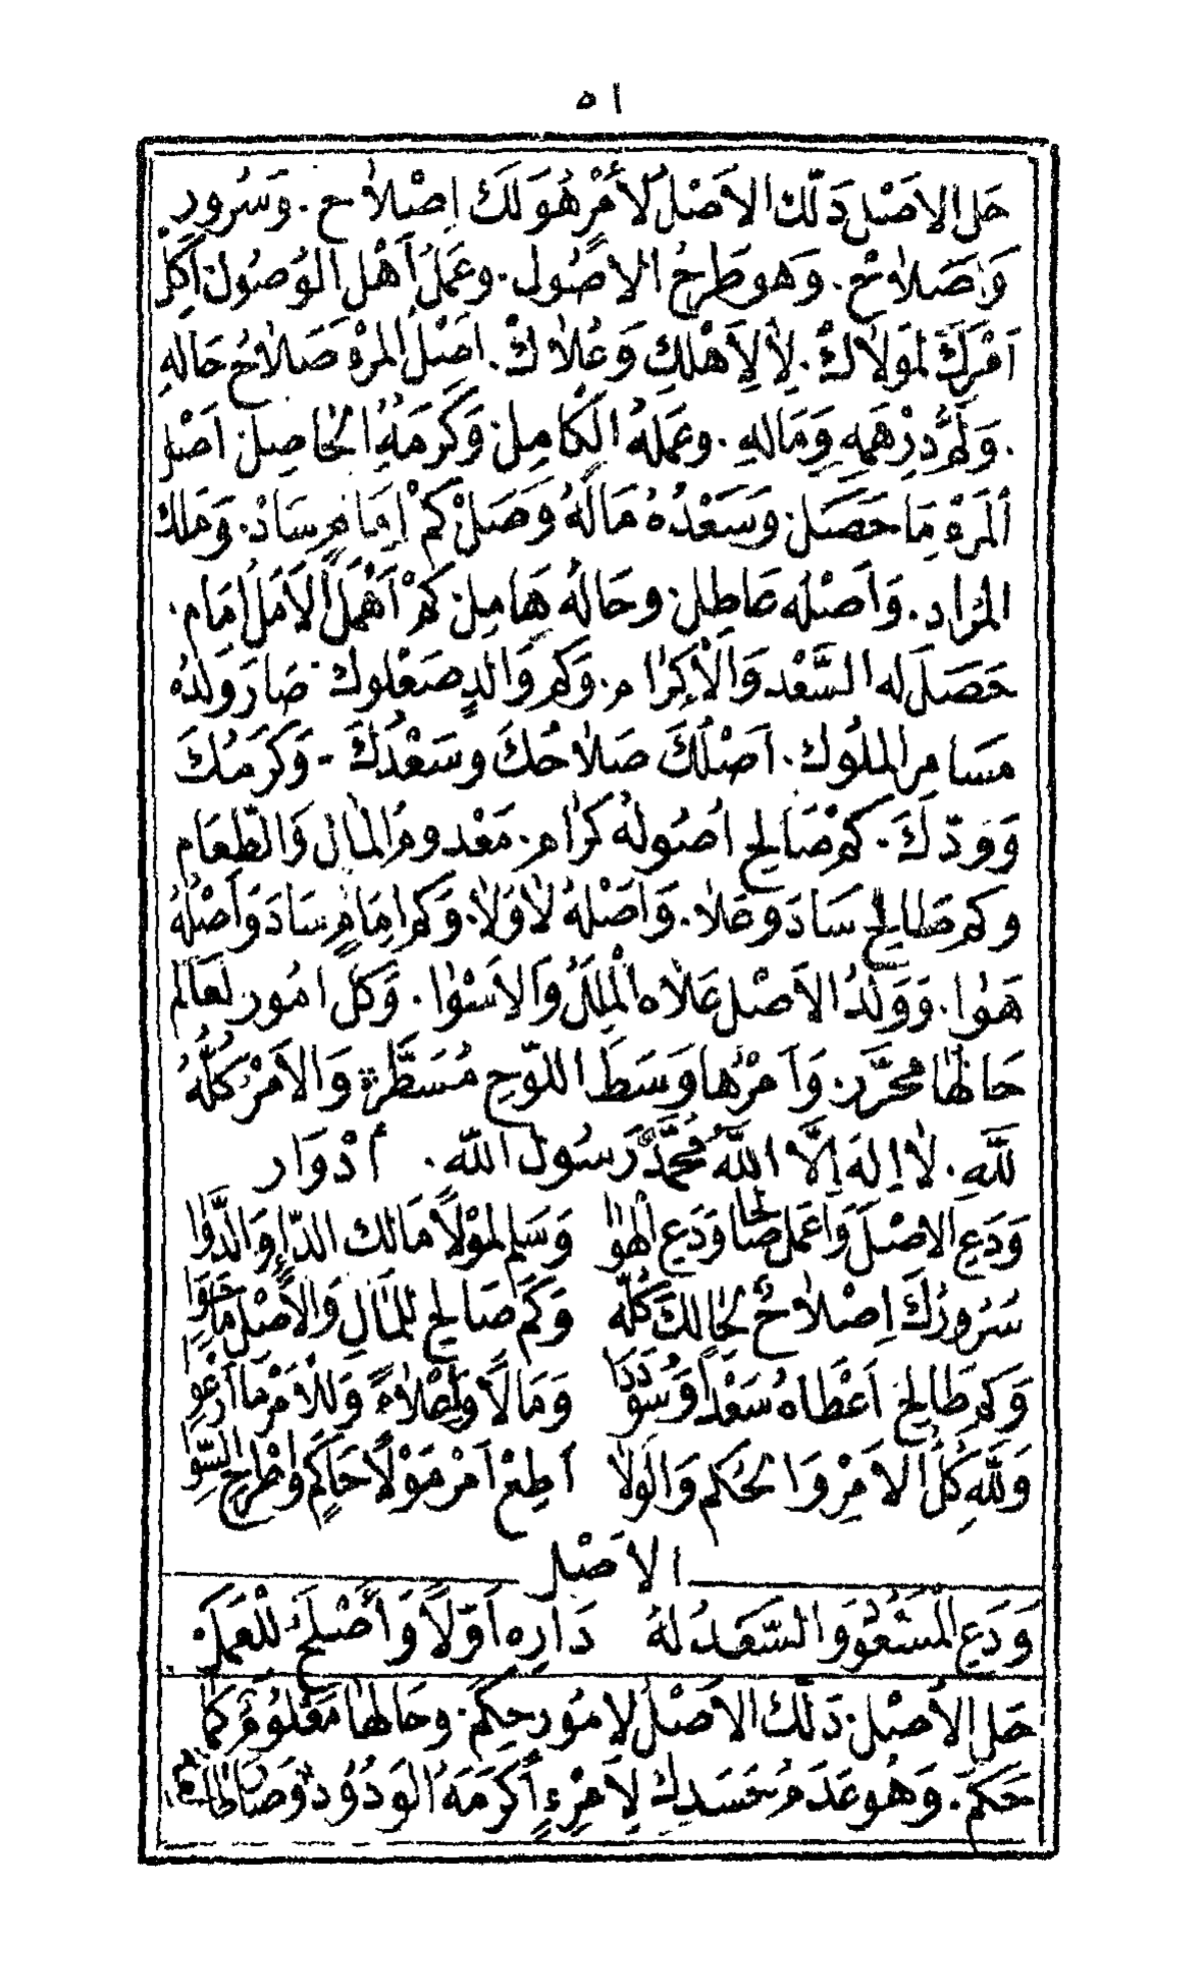 ٥١
حَل الاَصْل دَلّك الاَصْل لاَمْرٍ هُوَ لَكَ اِصْلاح . وَسُرور
وَاصَلاحٌ . وَهو طَرحُ الاصُول . وعَمَلُ أهْل الوُصُول اَكِلْ
اَمْرَكَ لمَوْلاكْ . لاٰ لِاَهْلكِ وَعُلاٰكْ . اَصْلُ المرْءِ صَلاٰحُ حَالهِ
. وَلَمُّ دِرْهَمِهِ وَمَالهِ . وعَمَلهُ الكَامِل وَكَرَمَهُ الحَاصِل اَصْل
المَرْءِ مَا حَصَل وَسَعْدُهُ مَالَهُ وَصَلْ كَمْ اِمَامٍ سَادْ . وَمَلك
المُراد . وَاَصْلُه عَاطِل وحَالُه هَامِل كَمْ اَهْمَلَ الاَمَلُ اِمَام .
حَصَلَ له السَّعْد وَالْاِكرَام . وَكم وَالدٍ صَعْلوك . صَارَ وَلدُه
مسَامِر الملُوك . اَصْلُكَ صَلاٰحُكَ وسَعْدُكَ - وَكَرَمُكَ
وَوَدّكَ . كَمْ صَالحٍ اُصُولهُ كرَام . مَعْدومُ المالِ وَالطّعَام
وكم طَالحٍ سَادَ وعَلاٰ . وَاَصْلهُ لاٰ وَلاٰ . وَكم اِمَامٍ سَادَ وَاَصْلُهُ
هَوا . وَوَلدُ الاَصْل عَلاٰه المْلَلُ وَالاَسْوا . وَكلّ امُور لعَالم
حَالهَا محرّر . وَاَمْرُها وَسَطَ اللوّحِ مُسَطَّرة وَالاَمْرُ كلُّهُ
للّٰهِ . لاٰ اِلهَ اِلّا اللهُ محمّدٌ رَسُول الله . أدْوَار
وَدَعِ الاصْلَ وَاعمَل صَالحًا وَدَعِ الهَوا وَسَلم لموْلاً مَالك الدّاءِ وَالدَّوا
سُرورُكَ اِصْلاٰحٌ لحَالِكَ كُلّه وَكَم صَالحٍ للمَالِ وَالأصْلِ مَا حَوَا
وَكم طَالحٍ اَعْطَاهُ سَعْدًا وَسُوْدَدَا وَمَالاً وَاِصْلاٰحً وَللاَمْرِ مَا اَرعَوِ
وَللّٰهِ كلُّ الاَمْرِ وَالحُكم وَالوَلاٰ اَطِعْ اَمْرَ مَوْلاً حَاكمٍ وَاطْرحِ السّوِا
الاَصْل
وَدَعِ المَسْعُوْدَ وَالسَّعَدُ لهُ دَارِه اَوّلاً وَأصْلحَ للعَمَلَ
حَل الاَصْل . دَلّكَ الاصْلُ لامُور حِكَمْ . وحَالهَا مَعْلُومٌ كمَا
حَكمْ . وَهُو عَدَمُ حَسَدِك لاِمْرِءٍ اَكرَمَهُ الوَدُوُد